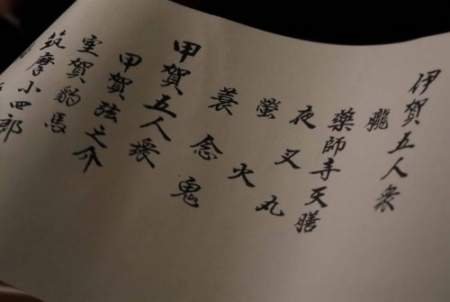 伊賀五人衆
朧
薬師寺天膳
夜叉丸
螢火
蓑念鬼
甲賀五人衆
甲賀弦之介
室賀豹馬
筑摩小四郎